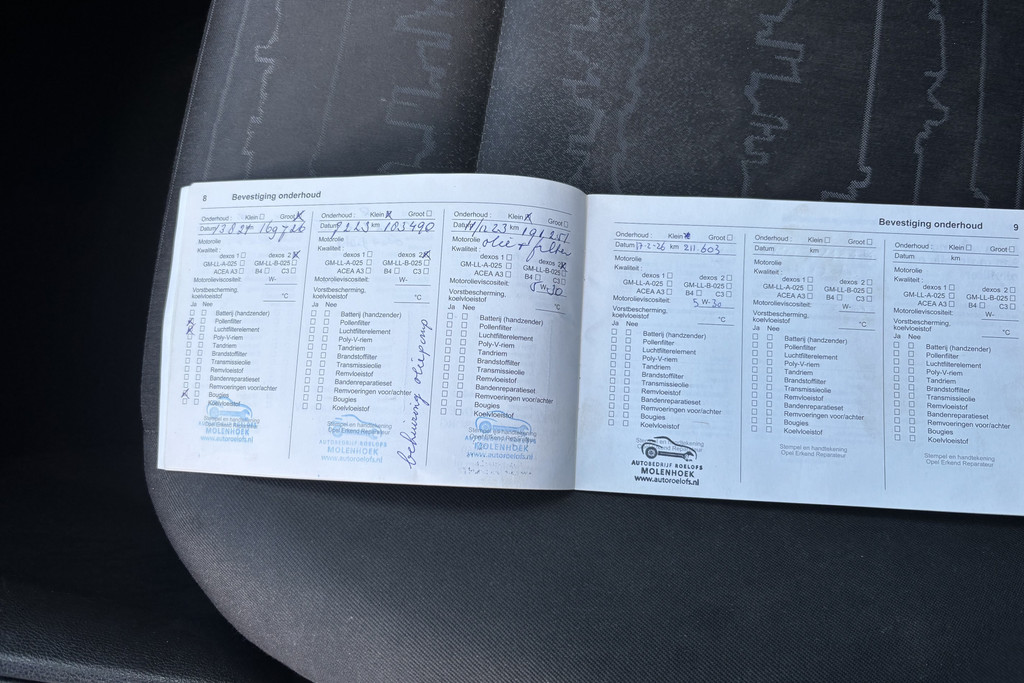 8 Bevestiging onderhoud
Onderhoud : Klein Groot
Datum km 169726
Motorolie
Kwaliteit :
dexos 1 dexos 2
GM-LL-A-025 GM-LL-B-025
ACEA A3 B4 C3
Motorolieviscositeit: W-
Vorstbescherming,
koelvloeistof °C
Ja Nee
Batterij (handzender)
Pollenfilter
Luchtfilterelement
Poly-V-riem
Tandriem
Brandstoffilter
Transmissieolie
Remvloeistof
Bandenreparatieset
Remvoeringen voor/achter
Bougies
Koelvloeistof
Stempel en handtekening
Opel Erkend Reparateur
MOLENHOEK
www.autoroelofs.nl
Onderhoud : Klein Groot
Datum km 183490
Motorolie
Kwaliteit :
dexos 1 dexos 2
GM-LL-A-025 GM-LL-B-025
ACEA A3 B4 C3
Motorolieviscositeit: W-
Vorstbescherming,
koelvloeistof °C
Ja Nee
Batterij (handzender)
Pollenfilter
Luchtfilterelement
Poly-V-riem
Tandriem
Brandstoffilter
Transmissieolie
Remvloeistof
Bandenreparatieset
Remvoeringen voor/achter
Bougies
Koelvloeistof
Stempel en handtekening
Opel Erkend Reparateur
AUTOBEDRIJF ROELOFS
MOLENHOEK
www.autoroelofs.nl
behuizing oliepomp
Onderhoud : Klein Groot
Datum km
Motorolie olie + filter
Kwaliteit :
dexos 1 dexos 2
GM-LL-A-025 GM-LL-B-025
ACEA A3 B4 C3
Motorolieviscositeit: 5 W-30
Vorstbescherming,
koelvloeistof °C
Ja Nee
Batterij (handzender)
Pollenfilter
Luchtfilterelement
Poly-V-riem
Tandriem
Brandstoffilter
Transmissieolie
Remvloeistof
Bandenreparatieset
Remvoeringen voor/achter
Bougies
Koelvloeistof
Stempel en handtekening
Opel Erkend Reparateur
MOLENHOEK
www.autoroelofs.nl
Bevestiging onderhoud 9
Onderhoud : Klein Groot
Datum 17-2-26 km 211.603
Motorolie
Kwaliteit :
dexos 1 dexos 2
GM-LL-A-025 GM-LL-B-025
ACEA A3 B4 C3
Motorolieviscositeit: 5 W-30
Vorstbescherming,
koelvloeistof °C
Ja Nee
Batterij (handzender)
Pollenfilter
Luchtfilterelement
Poly-V-riem
Tandriem
Brandstoffilter
Transmissieolie
Remvloeistof
Bandenreparatieset
Remvoeringen voor/achter
Bougies
Koelvloeistof
Stempel en handtekening
Opel Erkend Reparateur
AUTOBEDRIJF ROELOFS
MOLENHOEK
www.autoroelofs.nl
Onderhoud : Klein Groot
Datum km
Motorolie
Kwaliteit :
dexos 1 dexos 2
GM-LL-A-025 GM-LL-B-025
ACEA A3 B4 C3
Motorolieviscositeit: W-
Vorstbescherming,
koelvloeistof °C
Ja Nee
Batterij (handzender)
Pollenfilter
Luchtfilterelement
Poly-V-riem
Tandriem
Brandstoffilter
Transmissieolie
Remvloeistof
Bandenreparatieset
Remvoeringen voor/achter
Bougies
Koelvloeistof
Stempel en handtekening
Opel Erkend Reparateur
Onderhoud : Klein Groot
Datum km
Motorolie
Kwaliteit :
dexos 1 dexos 2
GM-LL-A-025 GM-LL-B-025
ACEA A3 B4 C3
Motorolieviscositeit: W-
Vorstbescherming,
koelvloeistof °C
Ja Nee
Batterij (handzender)
Pollenfilter
Luchtfilterelement
Poly-V-riem
Tandriem
Brandstoffilter
Transmissieolie
Remvloeistof
Bandenreparatieset
Remvoeringen voor/achter
Bougies
Koelvloeistof
Stempel en handtekening
Opel Erkend Reparateur